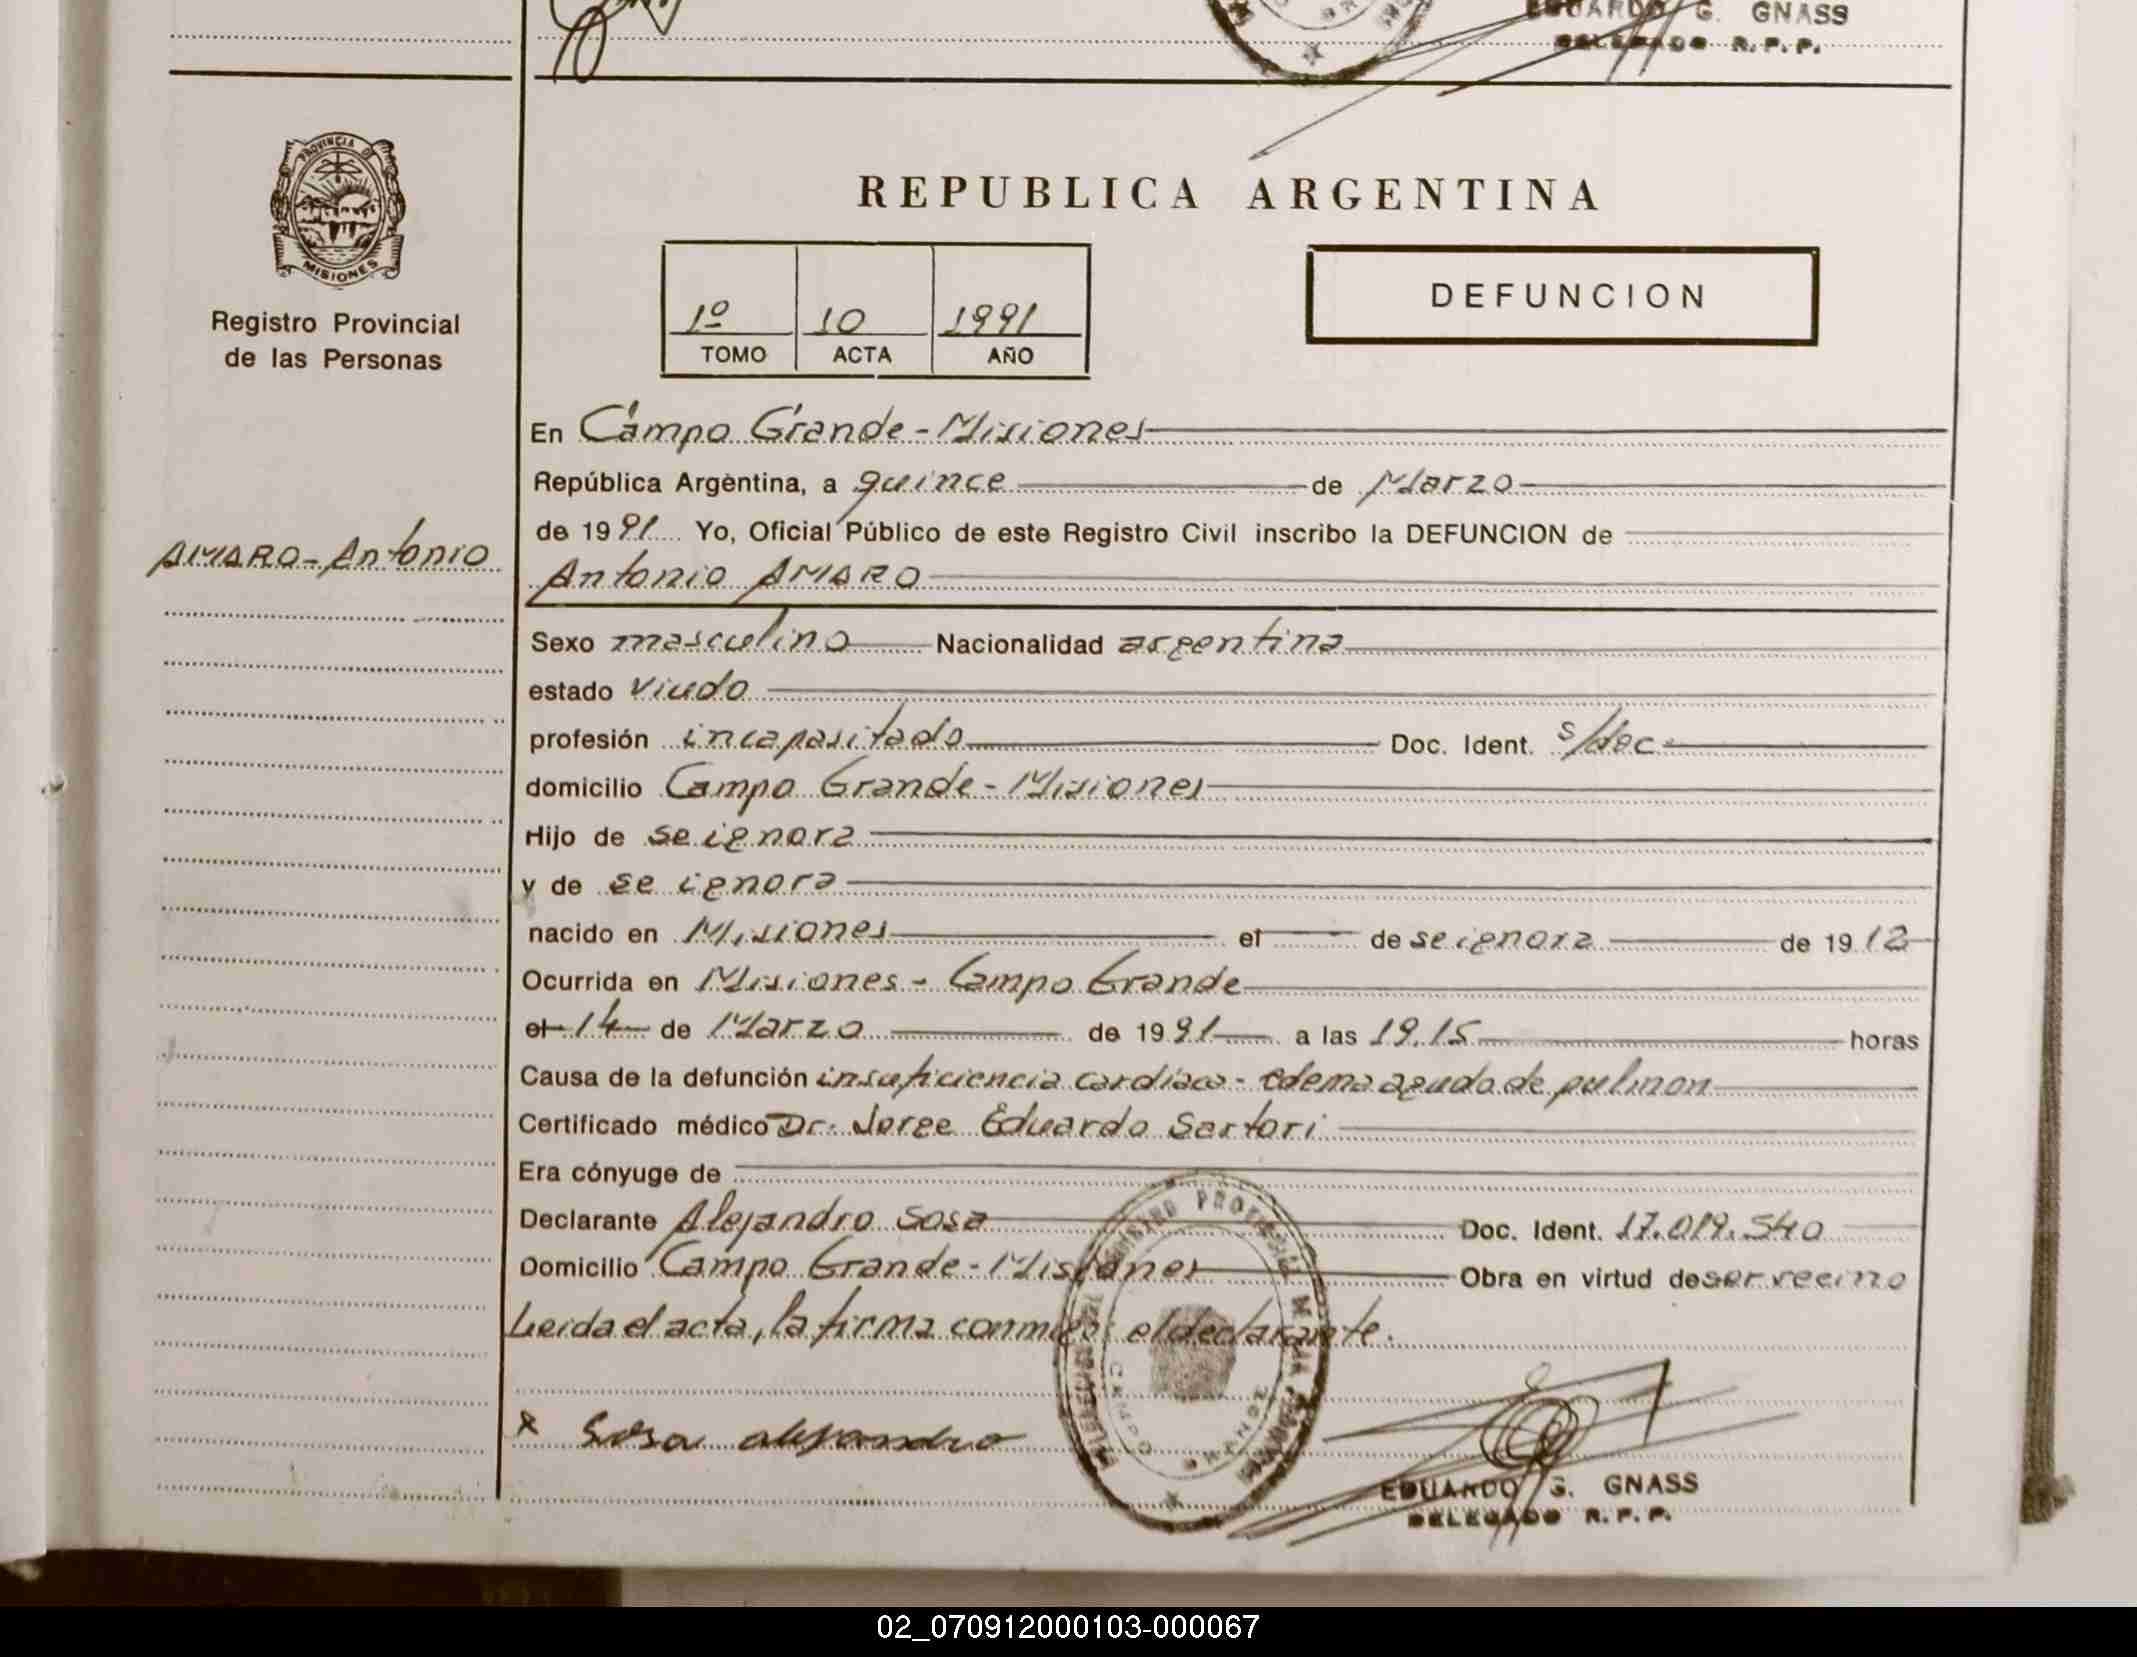 EDUARDO G. GNASS
DELEGADO R.P.P.
PROVINCIA DE
MISIONES
Registro Provincial
de las Personas
REPUBLICA ARGENTINA
1º 10 1991
TOMO ACTA AÑO
DEFUNCION
En Campo Grande - Misiones
República Argentina, a quince de Marzo
de 1991 Yo, Oficial Público de este Registro Civil inscribo la DEFUNCION de
AMARO - Antonio
Antonio AMARO
Sexo masculino Nacionalidad argentina
estado viudo
profesión incapasitado Doc. Ident. s/doc
domicilio Campo Grande - Misiones
Hijo de se ignora
y de se ignora
nacido en Misiones el de se ignora de 1912
Ocurrida en Misiones - Campo Grande
el 14 de Marzo de 1991 a las 19.15 horas
Causa de la defunción insuficiencia cardiaca - edema agudo de pulmon
Certificado médico Dr. Jorge Eduardo Sartori
Era cónyuge de
Declarante Alejandro Sosa Doc. Ident. 17.019.540
Domicilio Campo Grande - Misiones Obra en virtud de ser vecino
Leida el acta, la firma conmigo el declarante.
x Sosa alejandro
CAMPO GRANDE
EDUARDO G. GNASS
DELEGADO R.P.P.
02_070912000103-000067